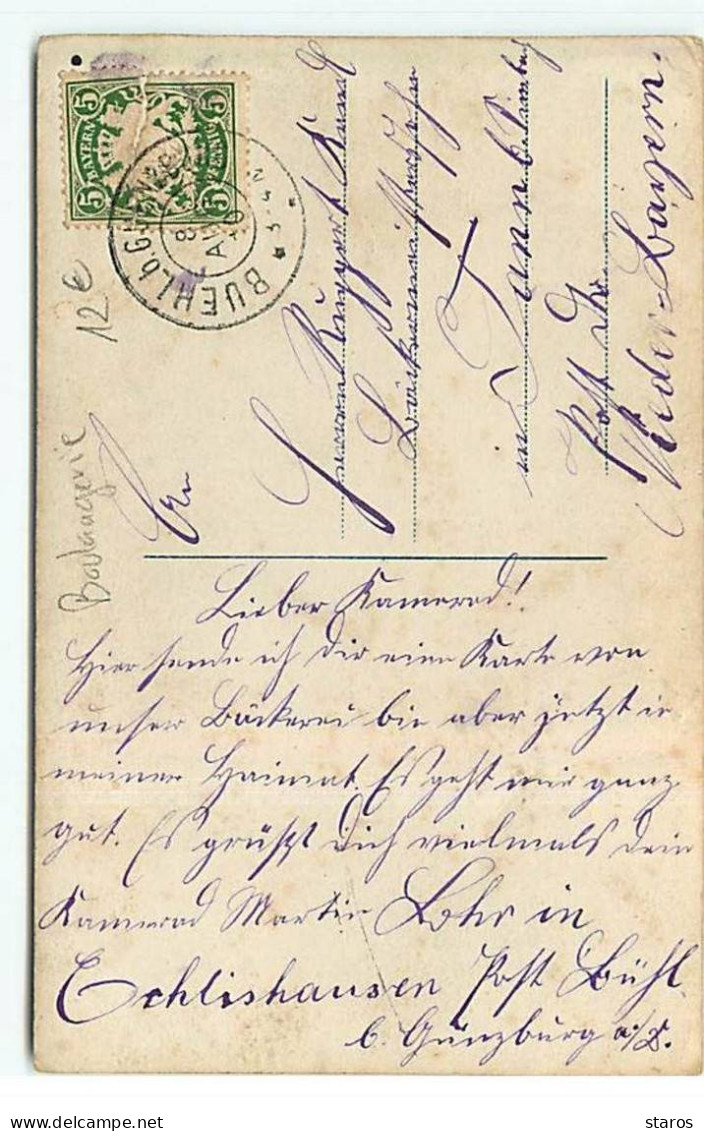 5 BAYERN 5
5 BAYERN 5
BUEHL b. GÜNZBG
8
3-4 N
12 €
Boulangerie
An
Herrn Ruppert
Bäckerei
in Tann b. Simbach
Post
Nieder=Baÿern.
Lieber Kamerad!
Hier sende ich dir eine Karte von
unser Bäckerei bin aber jetzt in
meiner Heimat. Es geht mir ganz
gut. Es grüßt Dich vielmals dein
Kamerad Martin Lohr in
Echlishausen Post Bühl
b. Günzburg a/D.
staros